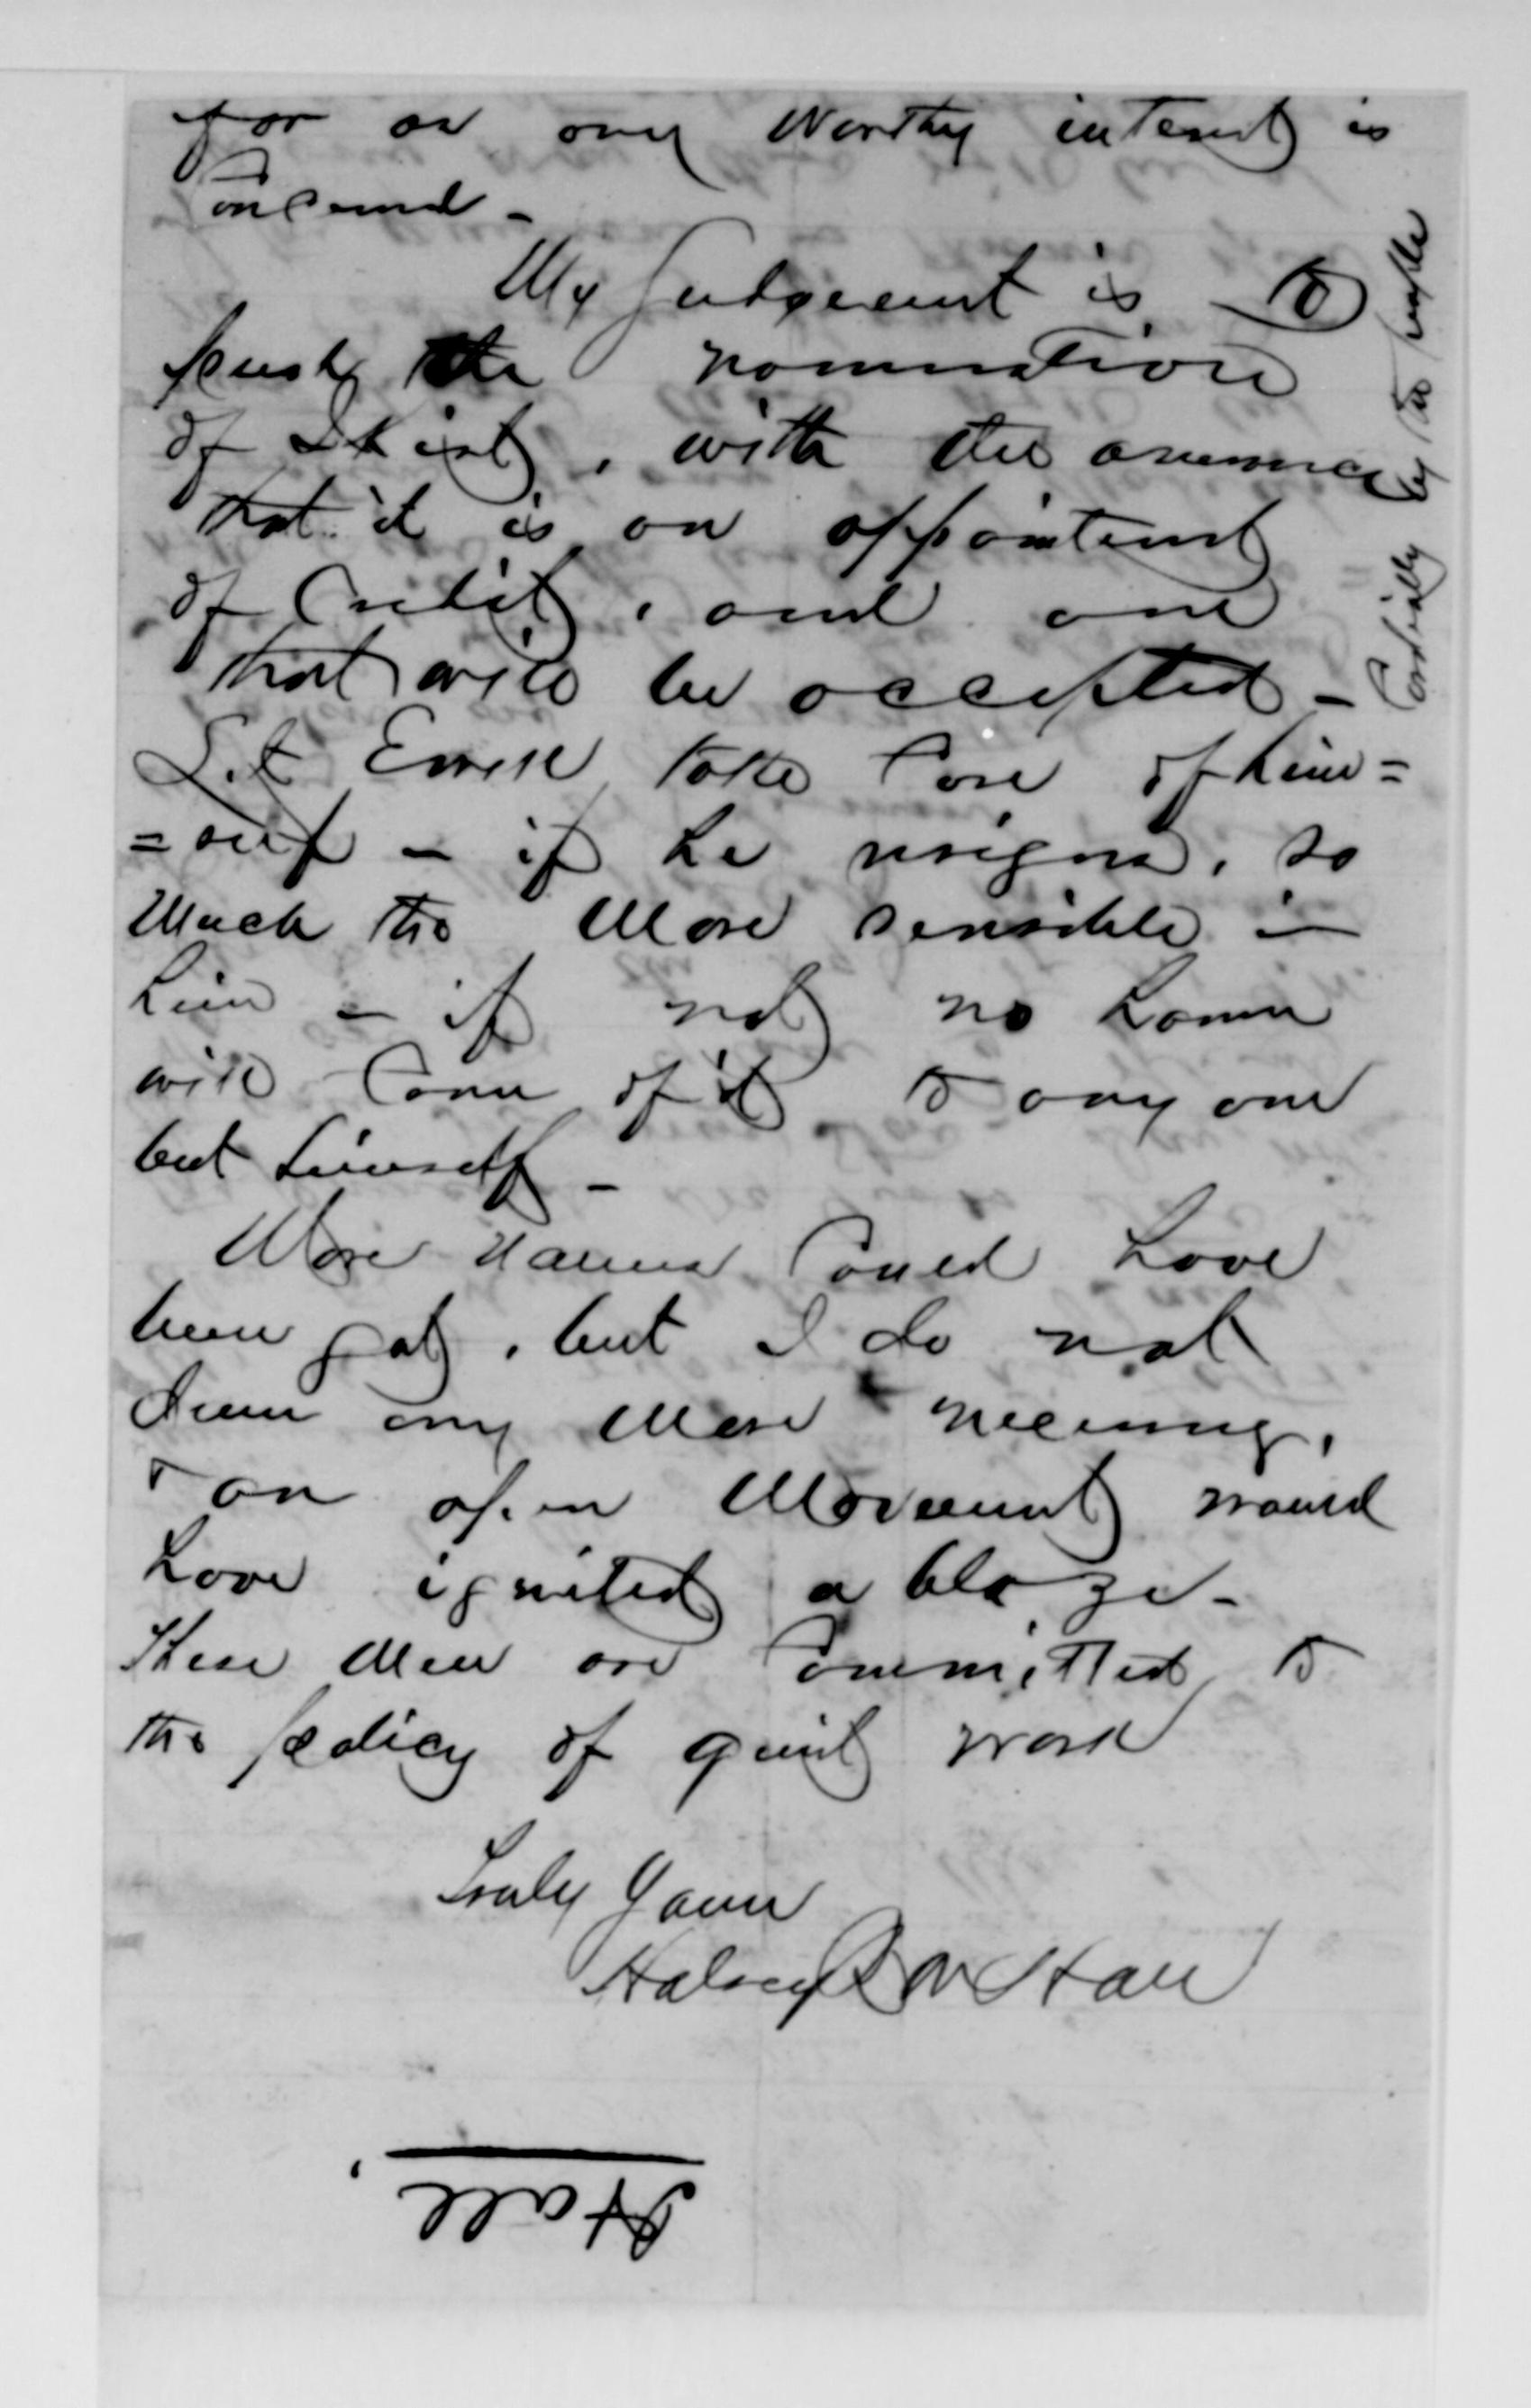 far as any worthy interest is
Concerned -
My Judgement is to
push the nomination
of Skirl, with the assurance
that it is an appointment
of Credit, and one
that will be accepted -
Let take Care of him=
=self - if he resigns, so
Much the More sensible in
him - if not no harm
will Come of it to any one
but himself -
More names Could have
been got, but I do not
deem any More necessary,
& an open Movement would
have ignited a blaze -
These Men are Committed to
the policy of quiet work
Truly Yours
Halsey R W Hall
Hall
Cordially by the people